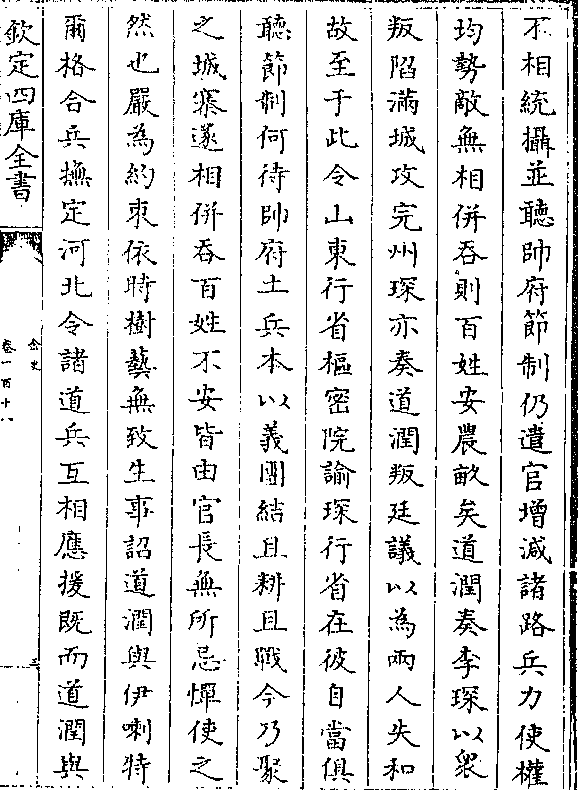 不相統攝並聽帥府節制仍遣官增減諸路兵力使權
均勢敵無相併吞則百姓安農畝矣道潤奏李琛以衆
叛陷滿城攻完州琛亦奏道潤叛廷議以為兩人失和
故至于此令山東行省樞密院諭琛行省在彼自當俱
聽節制何待帥府土兵本以義團結且耕且戰今乃聚
之城寨遂相併吞百姓不安皆由官長無所忌憚使之
然也嚴為約束依時樹藝無致生事詔道潤與伊喇特
爾格合兵撫定河北令諸道兵互相應援既而道潤與
欽定四庫全書
金史
卷一百十八
三